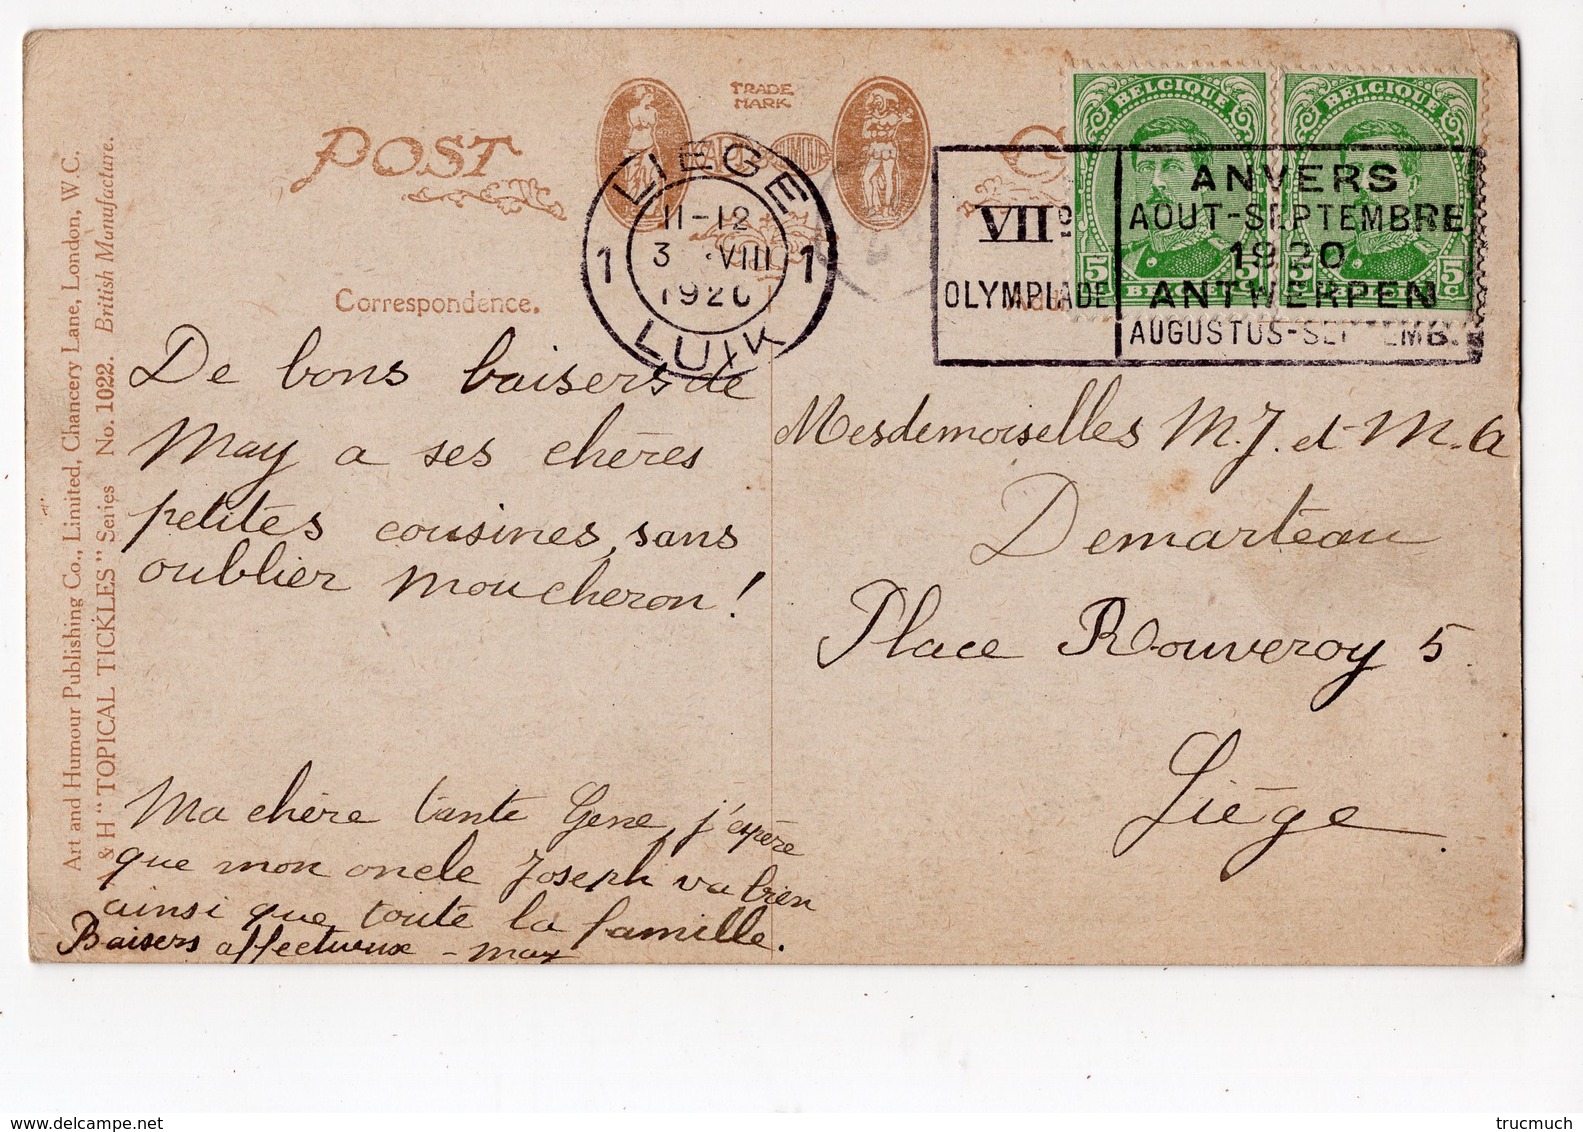 Art and Humour Publishing Co., Limited, Chancery Lane, London, W. C.
& H "TOPICAL TICKLES" Series No. 1022. British Manufacture.
POST C
TRADE
MARK
Correspondence.
LIEGE
11-12
1 3 VIII 1
1920
LUIK
VIIe
OLYMPIADE
ANVERS
AOUT-SEPTEMBRE
1920
ANTWERPEN
AUGUSTUS-SEPTEMB.
BELGIQUE BELGIQUE
5 5 5 5c
De bons baisers de
May a ses chères
petites cousines, sans
oublier Moucheron!
Ma chère tante Gene, j'espère
que mon oncle Joseph va bien
ainsi que toute la famille.
Baisers affectueux - May
Mesdemoiselles M.J. et M.A
Demarteau
Place Rouveroy 5.
Liège.
trucmuch